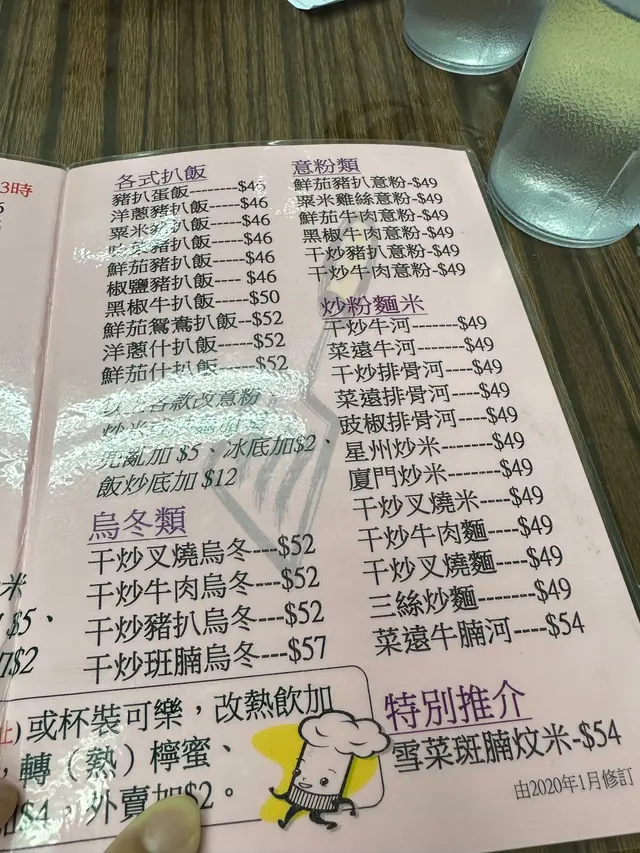 3時
各式扒飯
豬扒蛋飯--------$46
洋蔥豬扒飯-----$46
粟米豬扒飯-----$46
豬扒飯-----$46
鮮茄豬扒飯-----$46
椒鹽豬扒飯---- $46
黑椒牛扒飯-----$50
鮮茄鴛鴦扒飯--$52
洋蔥什扒飯-----$52
鮮茄什扒飯-----$52
各款改意粉、
加 $5、冰底加$2、
飯炒底加 $12
烏冬類
干炒叉燒烏冬---$52
干炒牛肉烏冬---$52
干炒豬扒烏冬---$52
干炒班腩烏冬---$57
意粉類
鮮茄豬扒意粉-$49
粟米雞絲意粉-$49
鮮茄牛肉意粉-$49
黑椒牛肉意粉-$49
干炒豬扒意粉-$49
干炒牛肉意粉-$49
炒粉麵米
干炒牛河-------$49
菜遠牛河-------$49
干炒排骨河----$49
菜遠排骨河----$49
豉椒排骨河----$49
星州炒米-------$49
廈門炒米-------$49
干炒叉燒米----$49
干炒牛肉麵----$49
干炒叉燒麵----$49
三絲炒麵-------$49
菜遠牛腩河----$54
米
$5、
$2
或杯裝可樂，改熱飲加
，轉（熱）檸蜜、
$4，外賣加$2。
特別推介
雪菜斑腩炆米-$54
由2020年1月修訂